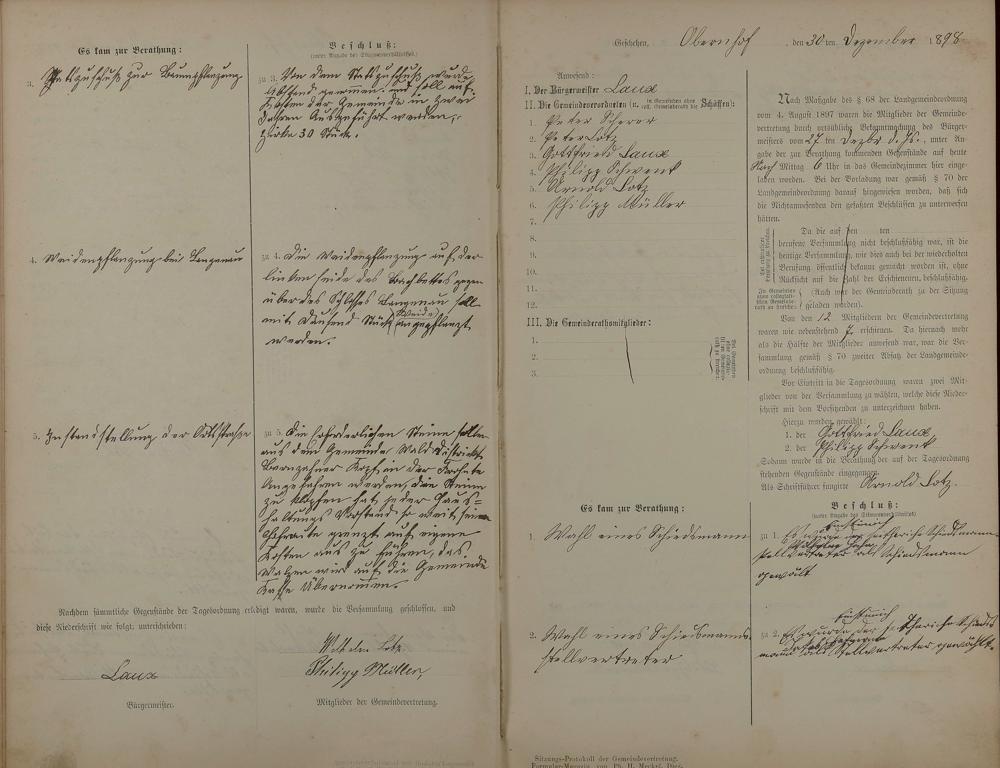 Es kam zur Berathung:
3. Staatszuschuß zur Baumpflanzung
4. Weidenpflanzung bei Langenau
5. Instandstellung der Ortsstraße
Beschluß:
(unter Angabe des Stimmenverhältnisses.)
zu 3. Von dem Staatszuschuß wurde
Abstand genommen und soll auf
Kosten der Gemeinde in zwei
Jahren Ausgeführt werden,
zirka 30 Stück.
zu 4. Die Weidenpflanzung auf der
linken Seite des Bachbettes gegen
über des Schloßes Langenau soll
mit Tausend Stück Weiden angepflanzt
werden.
zu 5. Die Erforderlichen Steine sollen
aus dem Gemeinde Wald Distrikt
Kopf, an der
Angefahren werden, die Steine
zu Klopfen hat jeder Haus=
haltungs Vorstand so weit seine
grenzt auf eigene
Kosten aus zu führen, das
Walzen wird auf die Gemeinde
Kasse Übernommen.
Nachdem sämmtliche Gegenstände der Tagesordnung erledigt waren, wurde die Versammlung geschlossen, und
diese Niederschrift wie folgt, unterschrieben:
Laux
Bürgermeister.
Lotz
Philipp Müller,
Mitglieder der Gemeindevertretung.
Geschehen, Obernhof, den 30ten Dezember 1898
Anwesend:
I. Der Bürgermeister Laux
II. Die Gemeindeverordneten (u. in Gemeinden ohne coll. Gemeinderath die Schöffen):
1. Peter Scherer
2. Peter Lotz
3. Gottfried Laux
4. Philipp Schwenk
5. Arnold Lotz
6. Philipp Müller
7.
8.
9.
10.
11.
12.
III. Die Gemeinderathsmitglieder:
1.
2.
3.
Nach Maßgabe des § 68 der Landgemeindeordnung
vom 4. August 1897 waren die Mitglieder der Gemeinde-
vertretung durch ortsübliche Bekanntmachung des Bürger-
meisters vom 27ten Dezbr d. Js., unter An-
gabe der zur Berathung kommenden Gegenstände auf heute
Nach Mittag 6 Uhr in das Gemeindezimmer hier einge-
laden worden. Bei der Vorladung war gemäß § 70 der
Landgemeindeordnung darauf hingewiesen worden, daß sich
die Nichtanwesenden den gefaßten Beschlüssen zu unterwerfen
hätten.
Da die auf den ten
berufene Versammlung nicht beschlußfähig war, ist die
heutige Versammlung, wie dies auch bei der wiederholten
Berufung öffentlich bekannt gemacht worden ist, ohne
Rücksicht auf die Zahl der Erschienenen, beschlußfähig.
(Auch war der Gemeinderath zu der Sitzung
geladen worden).
Von den 12 Mitgliedern der Gemeindevertretung
waren wie nebenstehend 7. erschienen. Da hiernach mehr
als die Hälfte der Mitglieder anwesend war, war die Ver-
sammlung gemäß § 70 zweiter Absatz der Landgemeinde-
ordnung beschlußfähig.
Vor Eintritt in die Tagesordnung waren zwei Mit-
glieder von der Versammlung zu wählen, welche diese Nieder-
schrift mit dem Vorsitzenden zu unterzeichnen haben.
Hierzu wurden gewählt:
1. der Gottfried Laux
2. der Philipp Schwenk
Sodann wurde in die Berathung der auf der Tagesordnung
stehenden Gegenstände eingegangen.
Als Schriftführer fungirte Arnold Lotz.
Es kam zur Berathung:
1. Wahl eines Schiedsmann
2. Wahl eines Schiedsmanns
stellvertreter
Beschluß:
(unter Angabe des Stimmenverhältnisses)
Einstimmig
zu 1. Es wurde der seitherige Schiedsmann
stellvertreter als Schiedsmann
gewählt
Einstimmig
zu 2. Es wurde der seitherige Schieds
mann als Stellvertreter gewählt.
Sitzungs-Protokoll der Gemeindevertretung.
Formular-Magazin von Ph. H. Meckel, Diez.